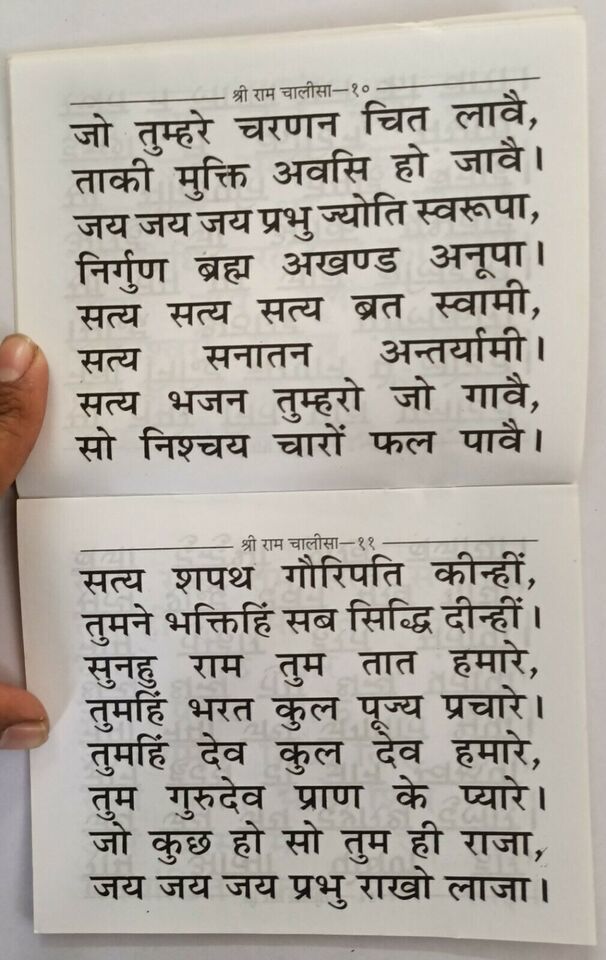 श्री राम चालीसा—१०
जो तुम्हरे चरणन चित लावै,
ताकी मुक्ति अवसि हो जावै।
जय जय जय प्रभु ज्योति स्वरूपा,
निर्गुण ब्रह्म अखण्ड अनूपा।
सत्य सत्य सत्य ब्रत स्वामी,
सत्य सनातन अन्तर्यामी।
सत्य भजन तुम्हरो जो गावै,
सो निश्चय चारों फल पावै।
श्री राम चालीसा—११
सत्य शपथ गौरिपति कीन्हीं,
तुमने भक्तिहिं सब सिद्धि दीन्हीं।
सुनहु राम तुम तात हमारे,
तुमहिं भरत कुल पूज्य प्रचारे।
तुमहिं देव कुल देव हमारे,
तुम गुरुदेव प्राण के प्यारे।
जो कुछ हो सो तुम ही राजा,
जय जय जय प्रभु राखो लाजा।